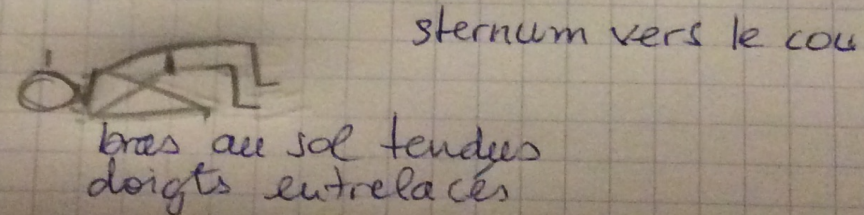 sternum vers le cou
bras au sol tendus
doigts entrelacés